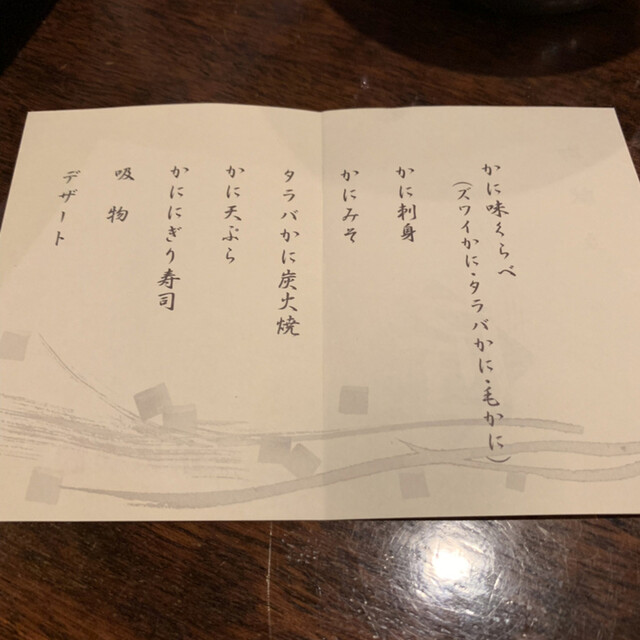 かに味くらべ
(ズワイかに・タラバかに・毛かに)
かに刺身
かにみそ
タラバかに炭火焼
かに天ぷら
かににぎり寿司
吸物
デザート